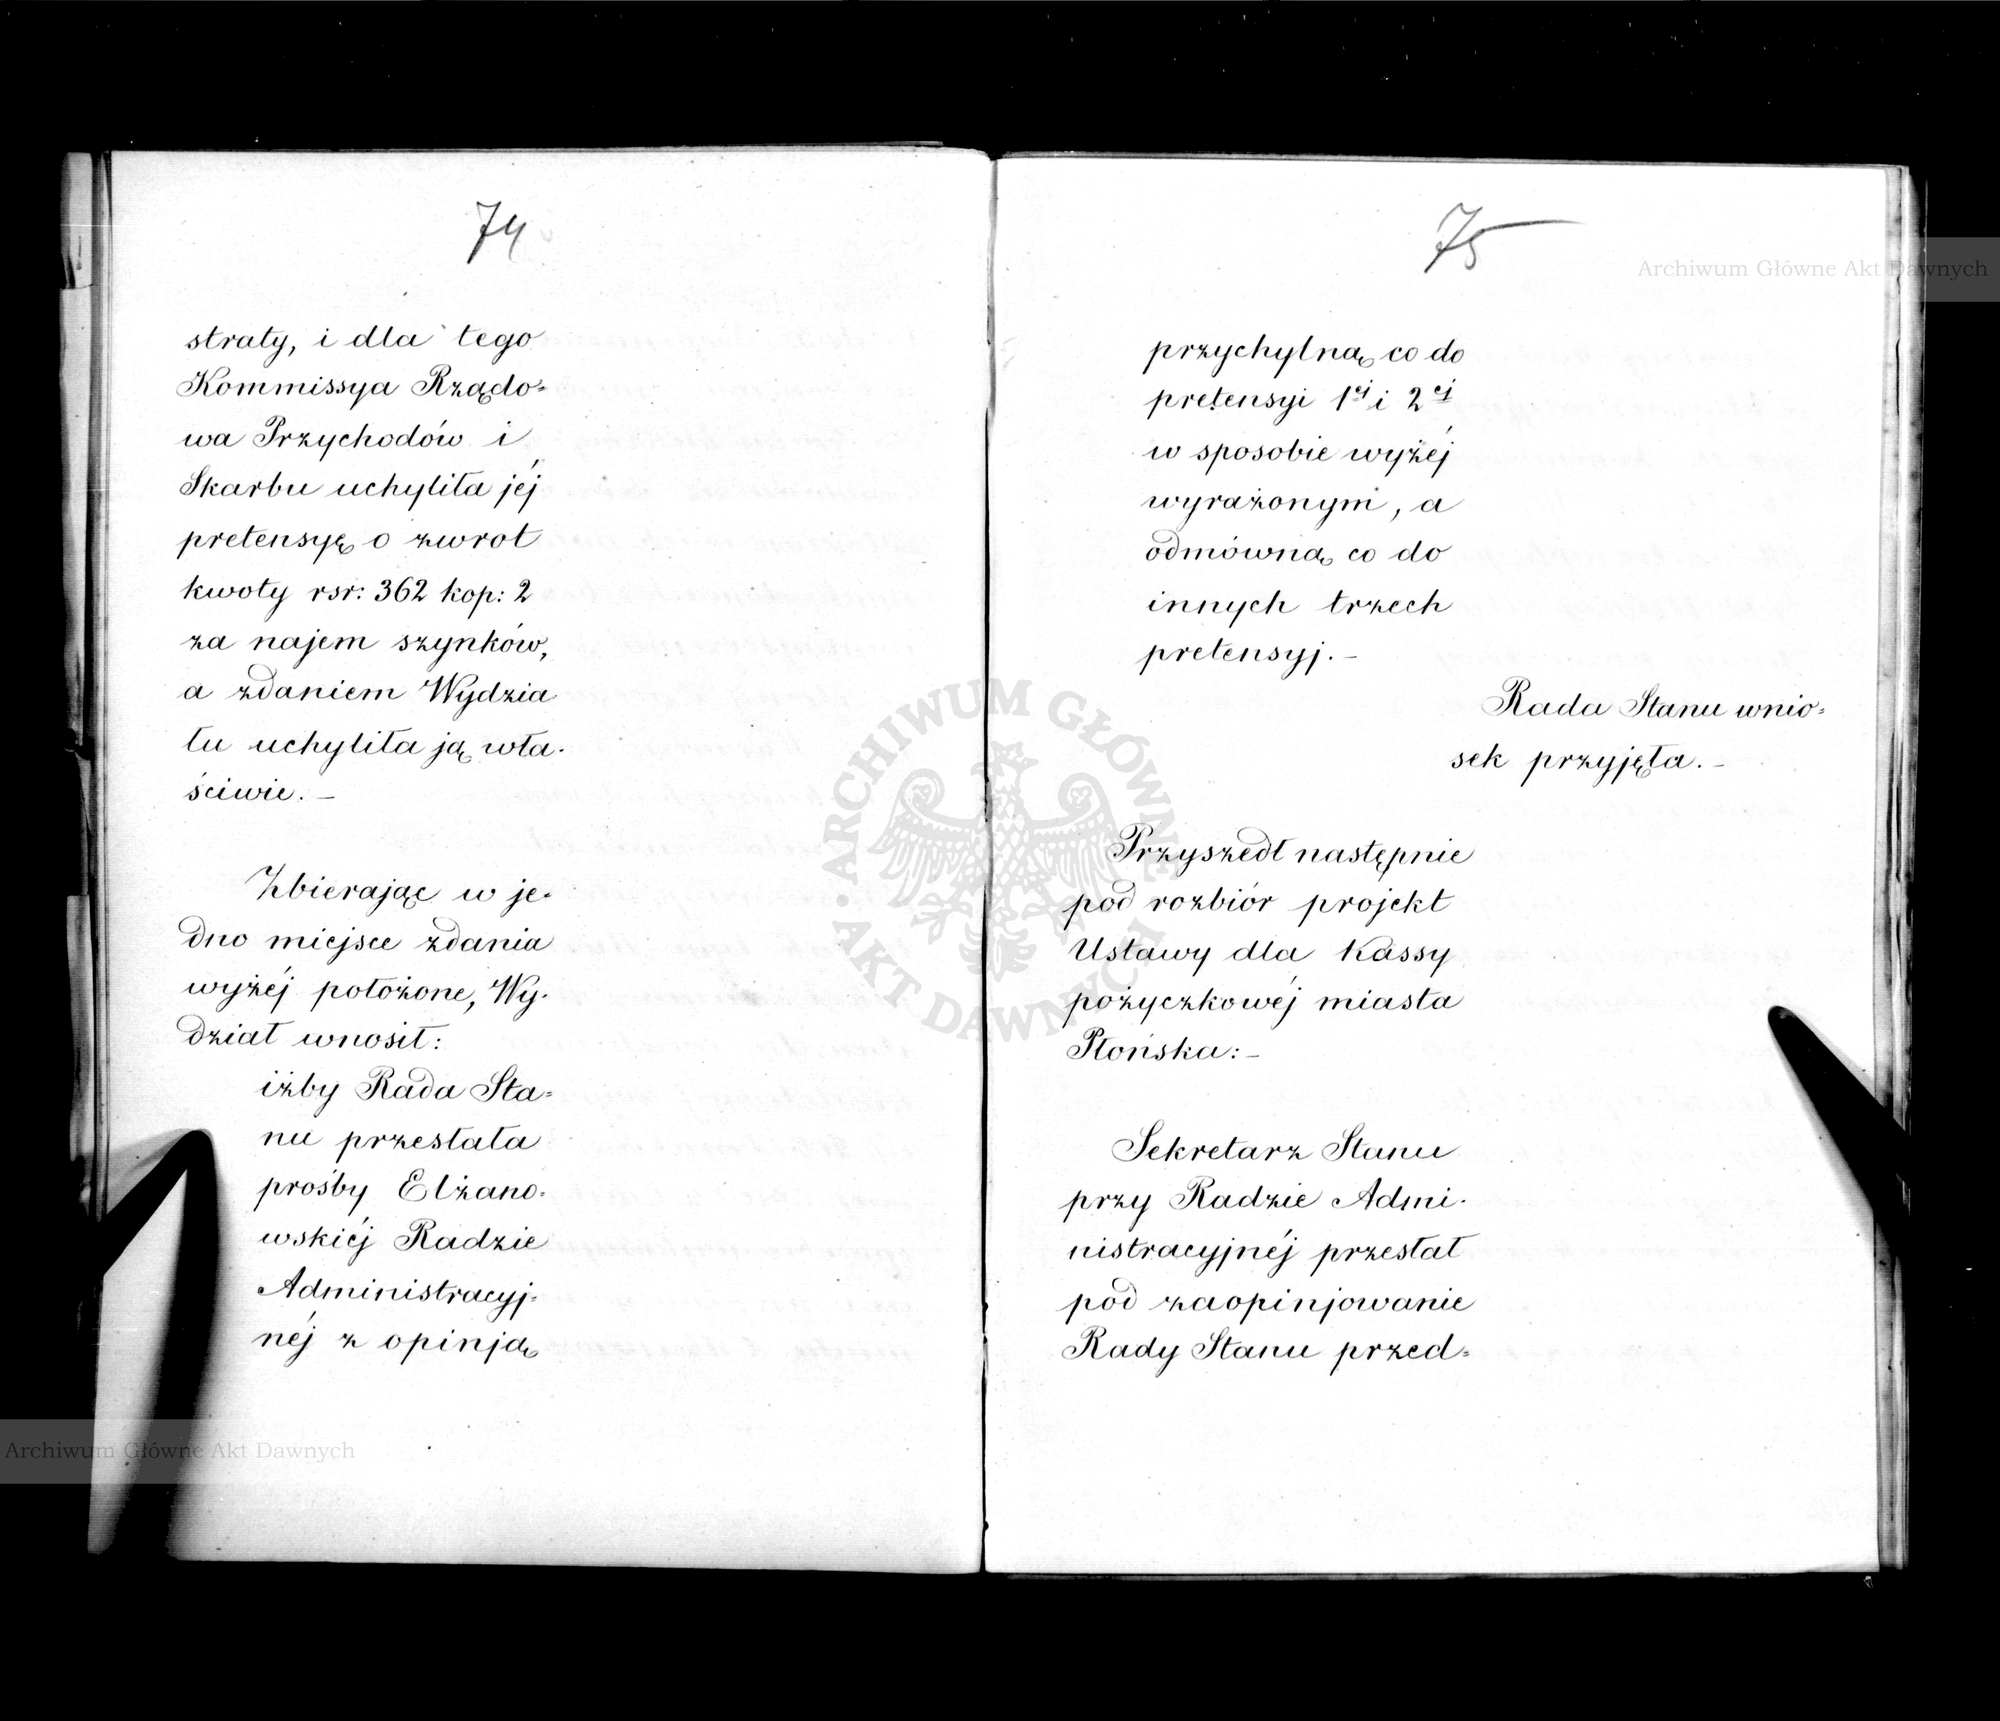 74
straty, i dla tego
Kommissya Rządo=
wa Przychodów i
Skarbu uchyliła jéj
pretensyę o zwrot
kwoty rsr: 362 kop: 2
za najem szynków,
a zdaniem Wydzia
łu uchyliła ją wła-
ściwie. –
Zbierając w je-
dno miejsce zdania
wyżéj położone, Wy-
dział wnosił:
iżby Rada Sta=
nu przesłała
prośby Elżano-
wskiéj Radzie
Administracyj=
néj z opinją
75
przychylną co do
pretensyi 1éj i 2éj
w sposobie wyżéj
wyrażonym, a
odmówną co do
innych trzech
pretensyj. –
Rada Stanu wnio=
sek przyjęła. –
Przyszedł następnie
pod rozbiór projekt
Ustawy dla Kassy
pożyczkowéj miasta
Płońska: –
Sekretarz Stanu
przy Radzie Admi-
nistracyjnéj przesłał
pod zaopinjowanie
Rady Stanu przed=
Archiwum Główne Akt Dawnych
ARCHIWUM GŁÓWNE AKT DAWNYCH
Archiwum Główne Akt Dawnych